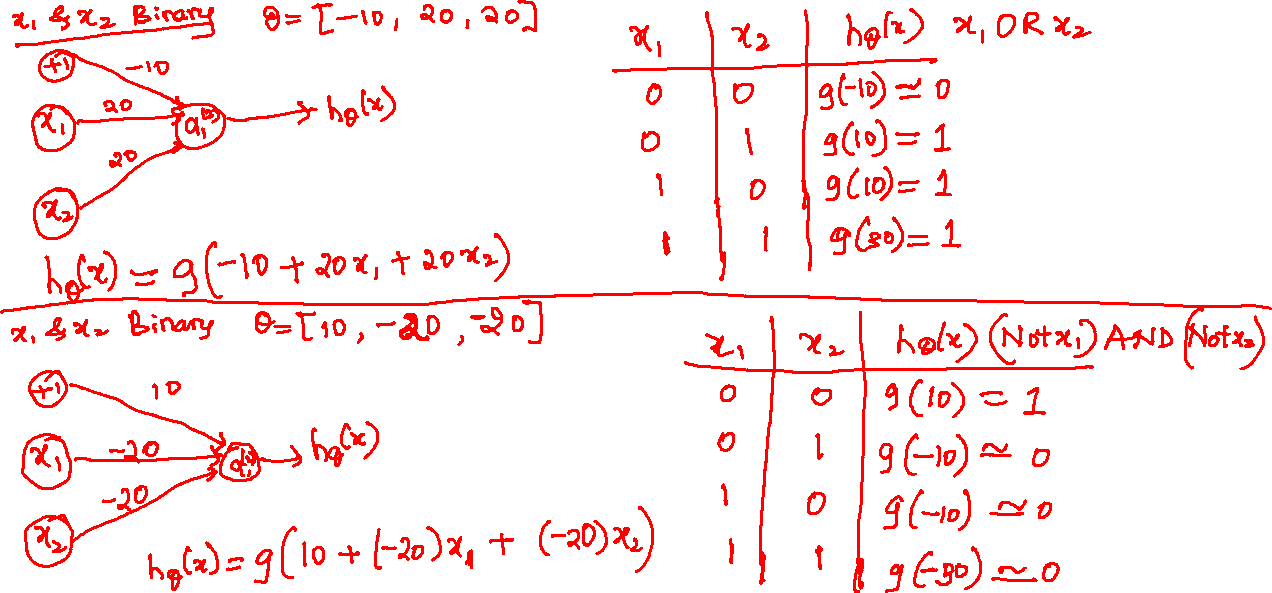 x₁ & x₂ Binary θ = [-10, 20, 20]
+1 -10
x₁ 20 a₁⁽²⁾ → hθ(x)
20
x₂
hθ(x) = g(-10 + 20x₁ + 20x₂)
x₁ x₂ hθ(x) x₁ OR x₂
0 0 g(-10) ≃ 0
0 1 g(10) = 1
1 0 g(10) = 1
1 1 g(30) = 1
x₁ & x₂ Binary θ = [10, -20, -20]
+1 10
x₁ -20 a₁⁽²⁾ → hθ(x)
-20
x₂
hθ(x) = g(10 + (-20)x₁ + (-20)x₂)
x₁ x₂ hθ(x) (Not x₁) AND (Not x₂)
0 0 g(10) = 1
0 1 g(-10) ≃ 0
1 0 g(-10) ≃ 0
1 1 g(-30) ≃ 0